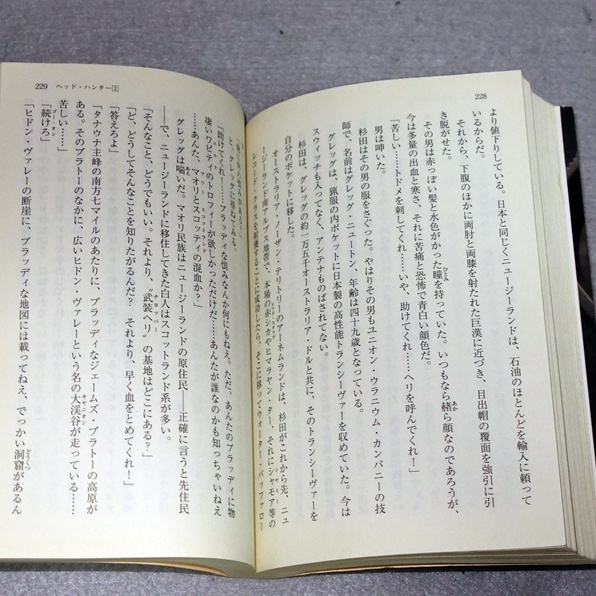 228
より値下りしている。日本と同じくニュージーランドは、石油のほとんどを輸入に頼って
いるからだ。
それから、下腹のほかに両肘と両膝を射たれた巨漢に近づき、目出帽の覆面を強引に引
き脱がせた。
その男は赤っぽい髪と水色がかった瞳を持っていた。いつもなら赭ら顔なのであろうが、
今は多量の出血と寒さ、それに苦痛と恐怖で青白い顔色だ。
「苦しい……トドメを刺してくれ……いや、助けてくれ……ヘリを呼んでくれ！」
男は呻いた。
杉田はその男の服をさぐった。やはりその男もユニオン・ウラニウム・カンパニーの技
師で、名前はグレッグ・ニュートン、年齢は四十九歳となっている。
グレッグは、猟服の内ポケットに日本製の高性能トランシーヴァーを収めていた。今は
スウィッチも入ってなく、アンテナものばされてない。
杉田は、グレッグの約一万五千オーストラリア・ドルと共に、そのトランシーヴァーを
自分のポケットに移した。
オーストラリア・ノーザン・テリトリーのアーネムランドは、杉田がこれから先、ニュ
ージーランド南アルプス地帯で、本場の赤シカやヒマラヤン・ター、それにシャモア等の
229 ヘッド・ハンター 上
と、グレッグに尋ねてみる。
「助けてくれ！……ブラッディな恨みなんか何にもねえ。ただ、あんたのブラッディに物
凄いワピティのトロフィーが欲しかっただけだ……あんたが誰なのかも知っちゃいねえ
……あんた、マオリとスコッティの混血か？」
グレッグは喘いだ。マオリ民族はニュージーランドの原住民――正確に言うと先住民
――で、ニュージーランドに移住してきた白人はスコットランド系が多い。
「そんなこと、どうでもいい。それより、〝武装ヘリ〟の基地はどこにある？」
「ど、どうしてそんなことを知りたがるんだ？　それより、早く血をとめてくれ！」
「答えろよ」
「タナウナ主峰の南方七マイルのあたりに、ブラッディなジェームズ・プラトーの高原が
ある。そのプラトーのなかに、広いヒドン・ヴァレーという名の大渓谷が走っている……
苦しい……」
「続けろ」
「ヒドン・ヴァレーの断崖に、ブラッディな地図には載ってねえ、でっかい洞窟があるん